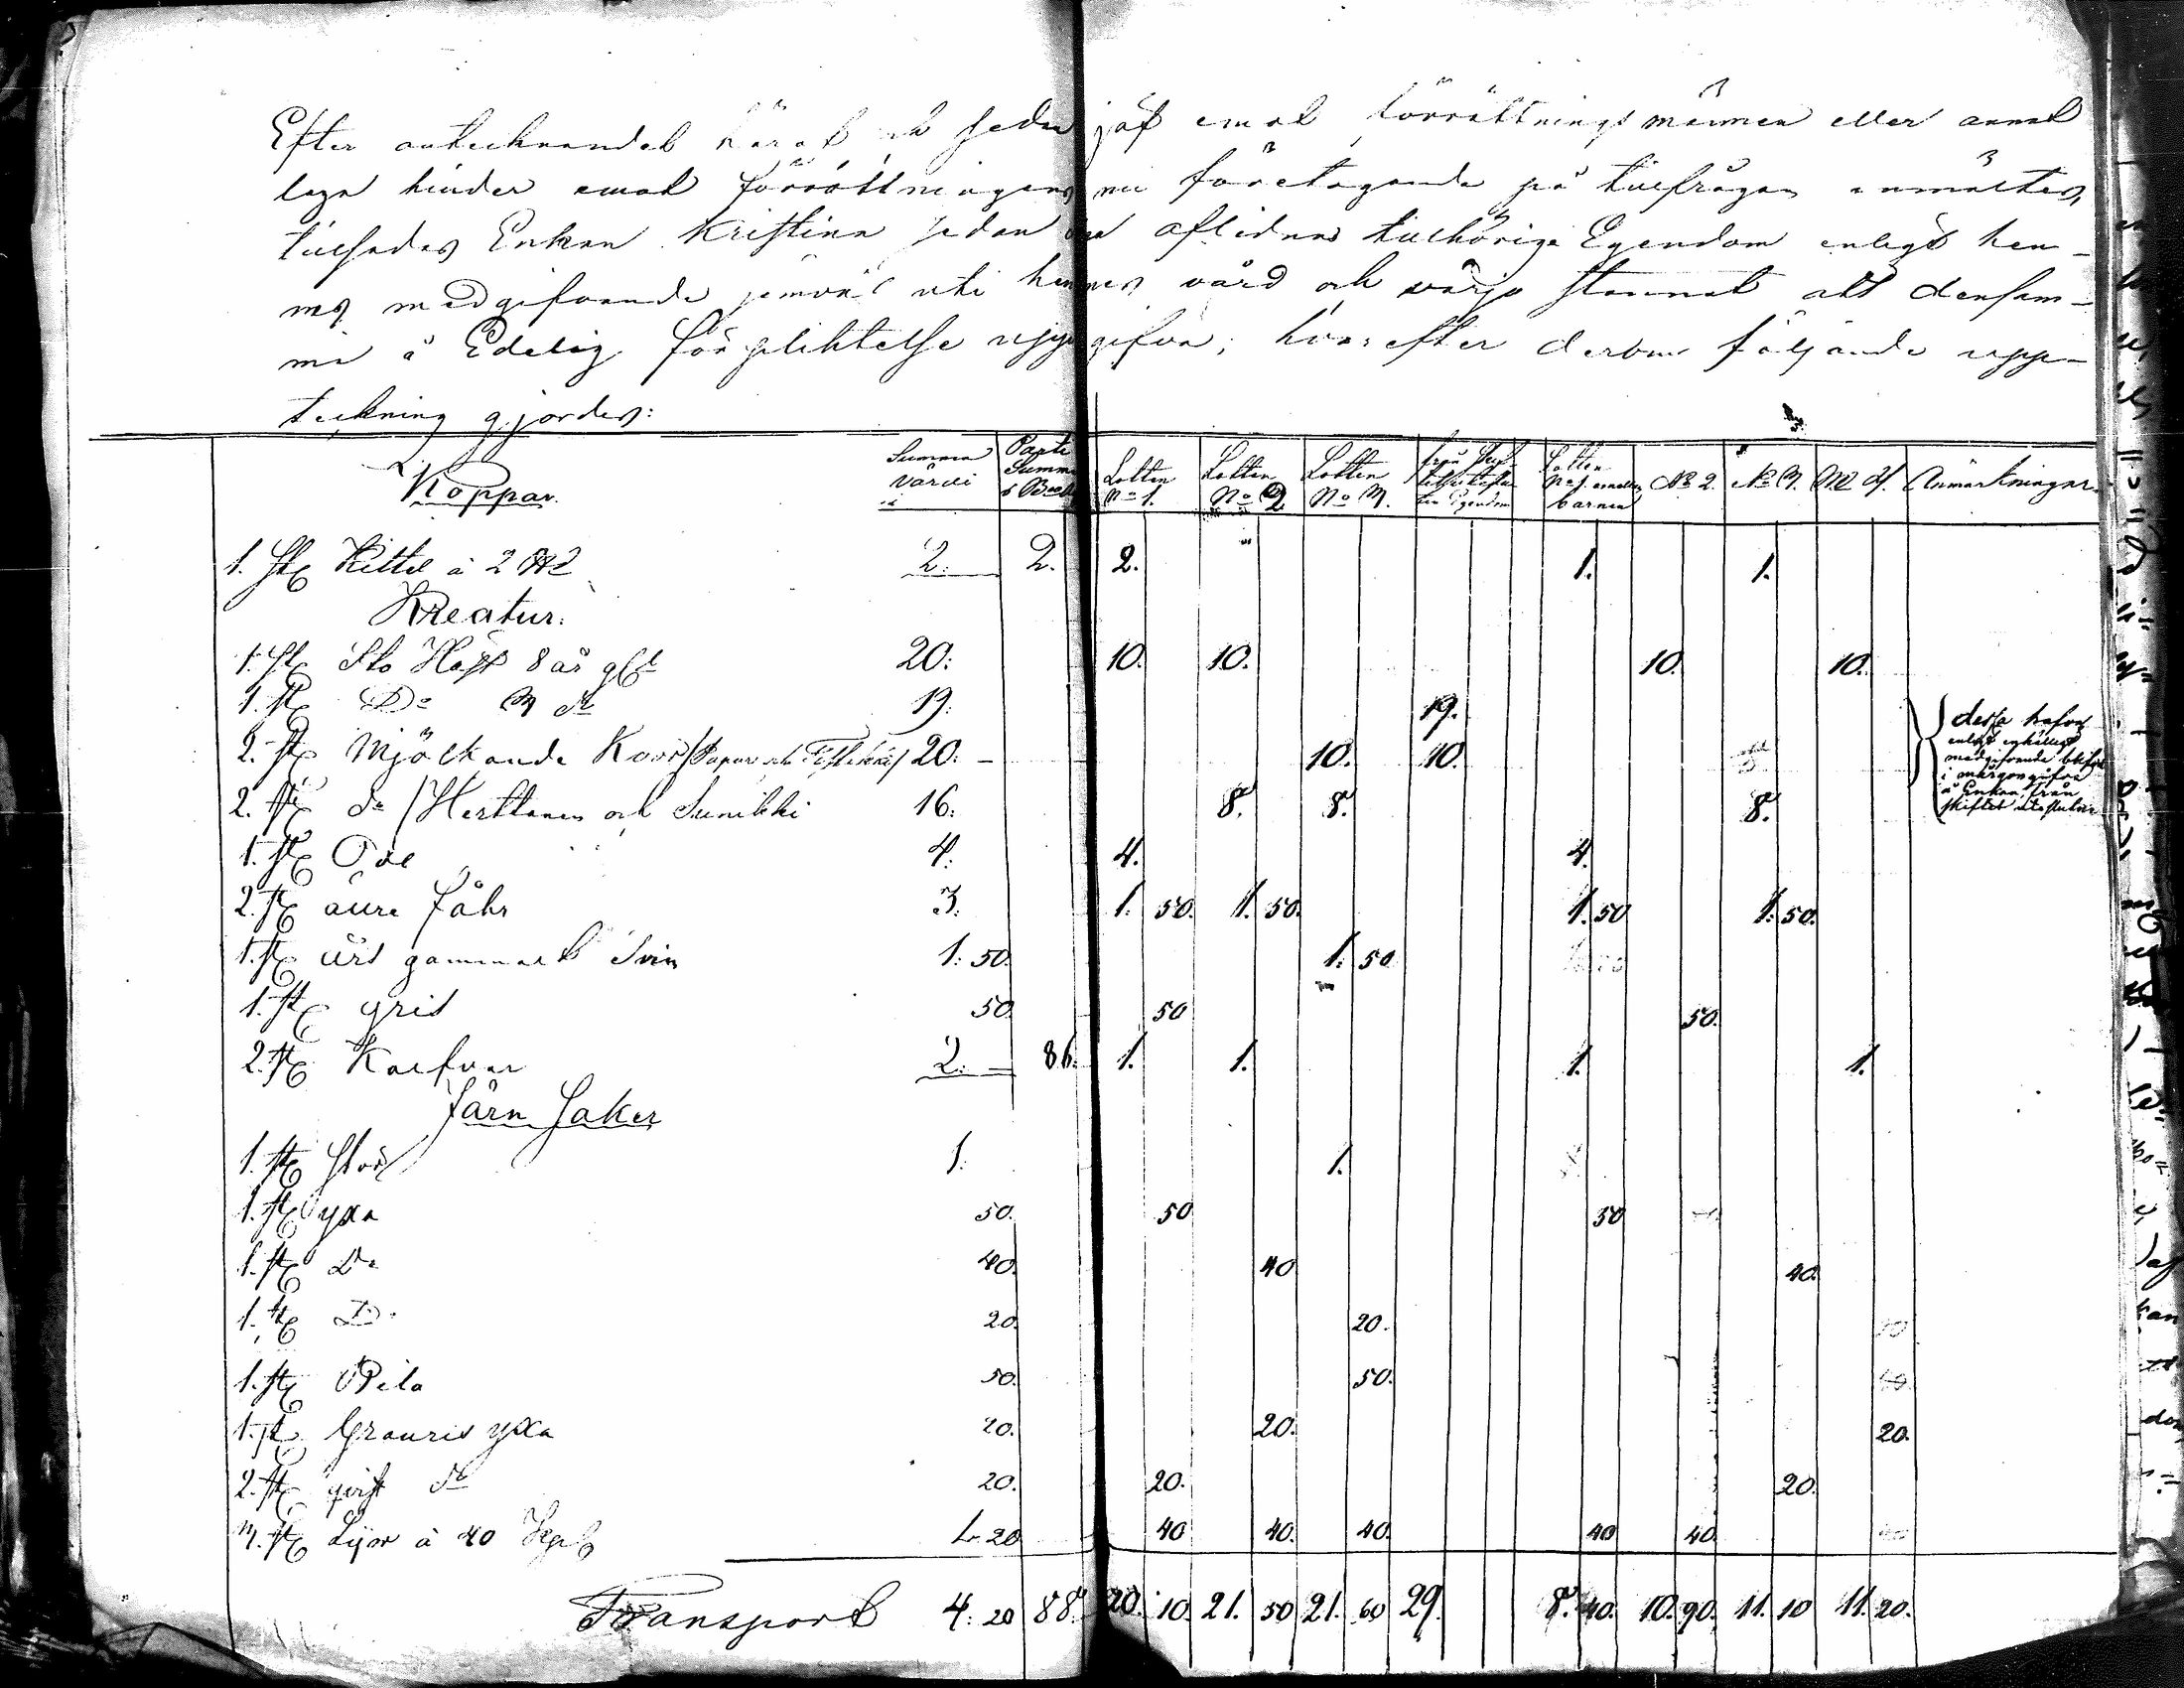 Efter antecknandet häraf och sedan jäf emot förrättningsmännen eller annat
laga hinder emot förrättningens nu företagande på tillfrågan anmältes,
tillsades Enkan Kristina sedan den aflidnes tillhöriga Egendom enligt hen-
nes medgifvande jemväl uti hennes vård och värjo stannat att densam-
ma å Edelig förpliktelse uppgifva; hvarefter derom följande upp-
teckning gjordes:
Koppar. Summa värde Lotten No 1. Lotten No 2 Lotten No 3. Lotten No 1. emellan barnen No 2. No 3. No 4. Anmärkningar.
1. st Kittel à 2 2: 2. 2. 1. 1.
Kreatur:
1. st Sto Häst 8 år gl 20: 10. 10. 10. 10.
1. st Do 3 do 19: 19.
2. st Mjölkande Koor 20: 10. 10.
dessa hafva
enligt enhälligt
medgifvande blifvit
i morgongåfva
å Enkan från
skiftet uteslutne
2. st do / Herttanen och Sunikki 16: 8. 8. 8.
1. st 4: 4. 4.
2. st äldre fåhr 3: 1. 50. 1. 50. 1. 50 1. 50.
1. st års gammalt Svin 1: 50. 1. 50
1. st gris 50. 50 50.
2. st Kalfvar 2: 86. 1. 1. 1. 1.
Järn Saker
1. st Stör 1: 1.
1. st yxa 50. 50 50
1. st Do 40. 40 40.
1. st Do 20. 20.
1. st Bila 50. 50.
1. st yxa 20. 20. 20.
2. st qvist do 20. 20. 20.
3. st Lijor à 40 Kop 1. 20 40 40. 40. 40 40.
Transport 4: 20 88. 20. 10. 21. 50 21. 60 29. 8. 40. 10. 90. 11. 10 11. 20.